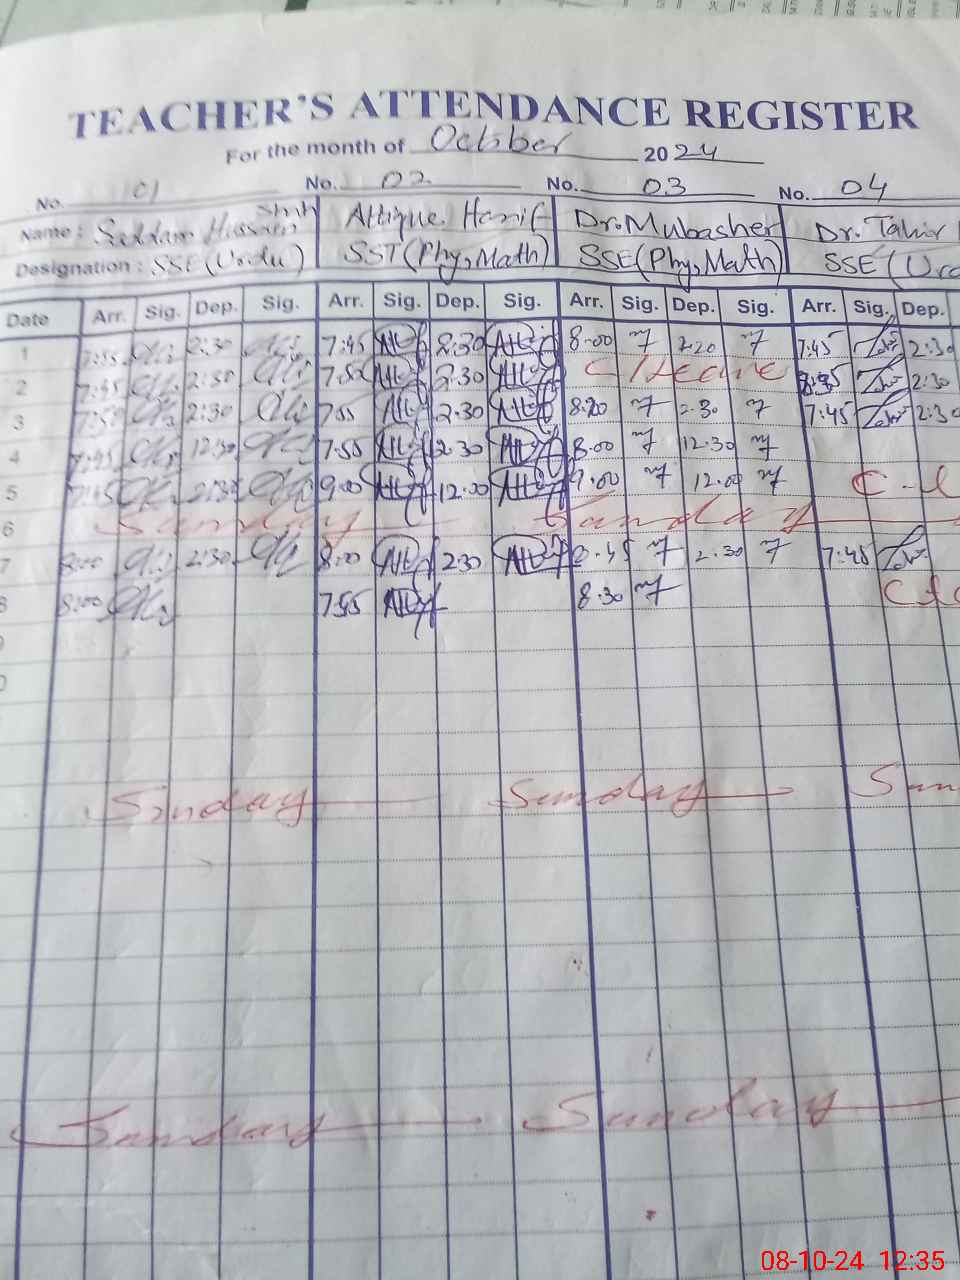 TEACHER'S ATTENDANCE REGISTER
For the month of October 2024
No. 01 No. 02 No. 03 No. 04
Name: Saddam Hussain Shah Attique Hanif Dr. Mubasher Dr. Tahir
Designation: SSE (Urdu) SST (Phy, Math) SSE (Phy, Math) SSE (
Date Arr. Sig. Dep. Sig. Arr. Sig. Dep. Sig. Arr. Sig. Dep. Sig. Arr. Sig. Dep.
1 7:55 2:30 7:45 2:30 8-00 2.20 7:45 2:30
2 7:45 2:30 7:50 2.30 C/leave 2:30
3 7:50 2:30 7:55 2.30 8:20 2.30 7:45 2:30
4 7:45 12:30 7:55 12 30 8.00 12.30
5 7:45 9:00 12.00 9.00 12.00 C-l
6 Sunday Sunday
7 8:00 2:30 8:00 2:30 8.45 2.30 7:45
8 8:00 7:55 8.30
Sunday Sunday Sun
Sunday Sunday
08-10-24 12:35